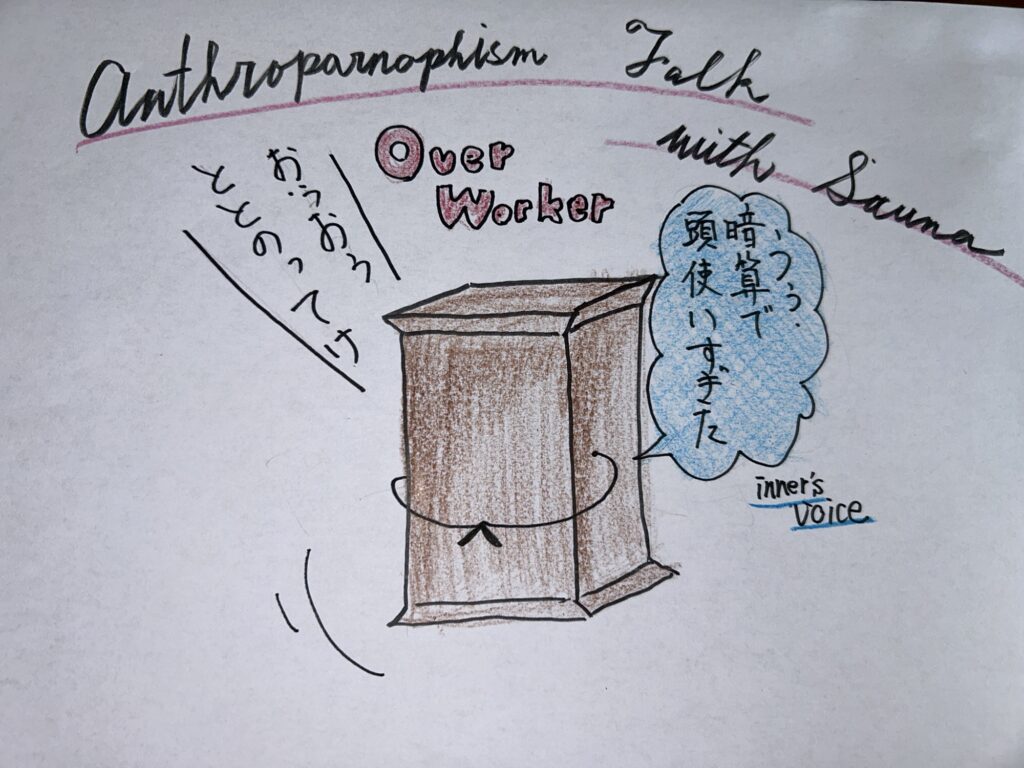 Anthroparnophism Talk
with Sauna
Over
Worker
おうおう
ととのってけ
うつぅ.
暗算で
頭使いすぎた
inner's
voice